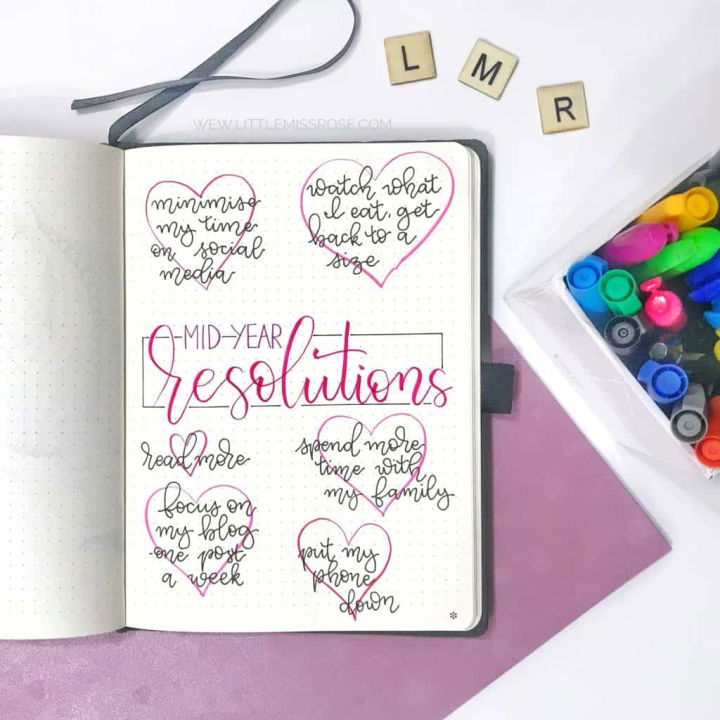 L M R
WEW.LITTLEMISSROSE.COM
minimise
my time
on social
media
watch what
I eat, get
back to a
size
MID-YEAR
resolutions
read more
spend more
time with
my family
focus on
my blog
-one post
a week
put my
phone
down